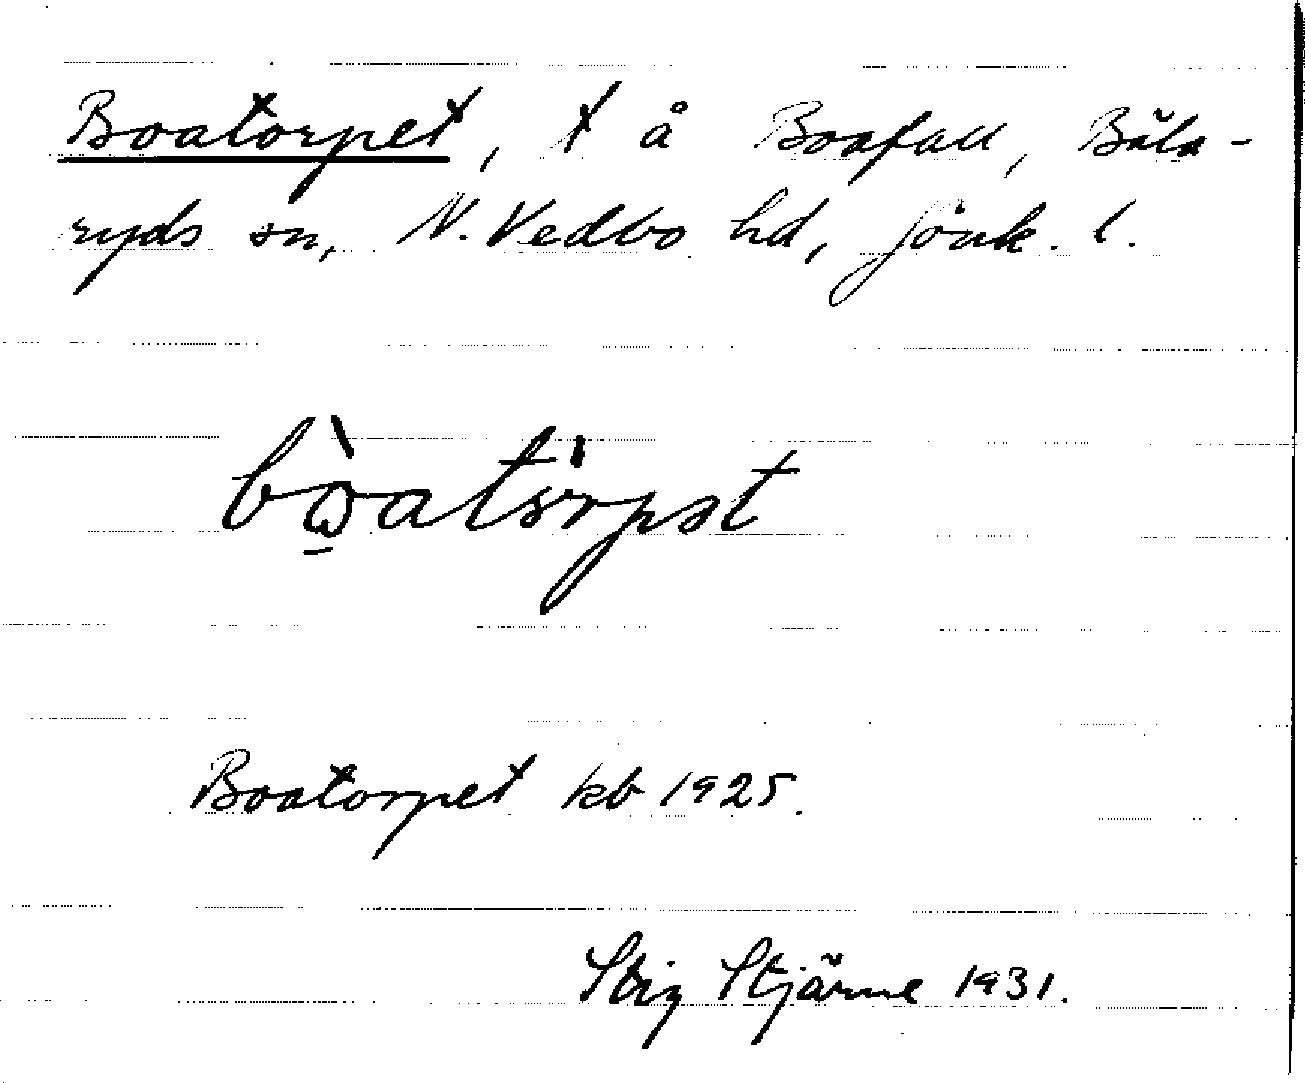 Boatorpet, t å Boafall, Bäla-
ryds sn, N. Vedbo hd, Jönk. l.
Boatorpet kb 1925.
Stig Stjärne 1931.